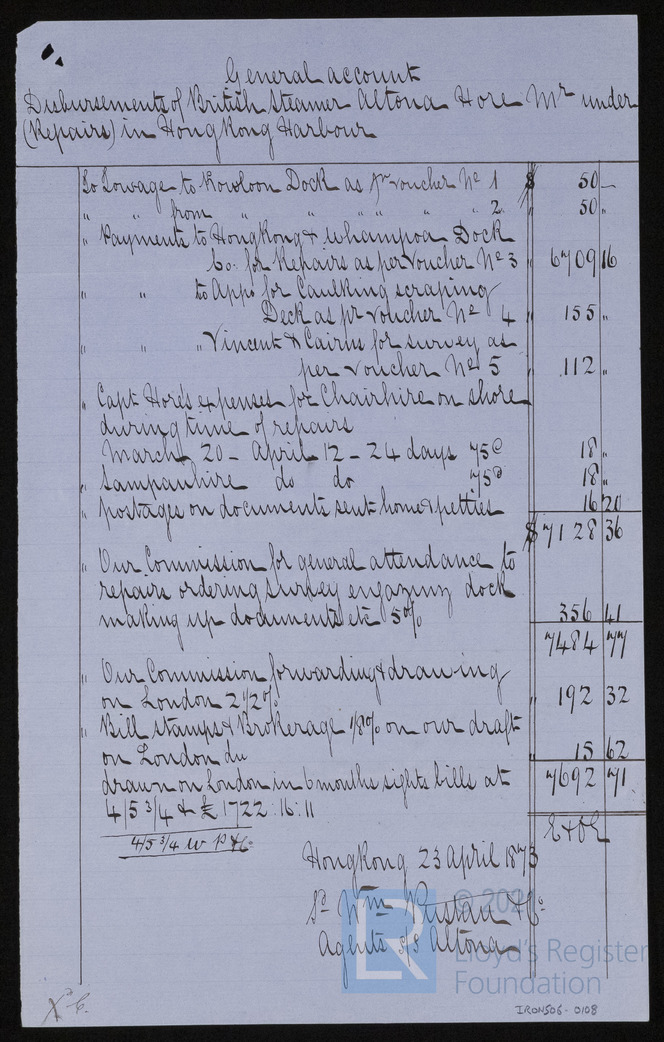 General account
Disbursements of British Steamer Altona Hore Mr under
(Repairs) in HongKong Harbour
To Towage to Kowloon Dock as pr voucher No 1 $ 50 —
" " from " " " " " 2 " 50 "
" Payments to HongKong & Whampoa Dock
Co. for Repairs as per Voucher No 3 6709 16
" " to App for Caulking scraping
Deck as pr voucher No 4 " 155 "
" " " Vincent & Cairns for survey as
per voucher No 5 " 112 "
" Capt Hore's expenses for Chairhire on shore
during time of repairs
March 20 - April 12 - 24 days 75c 18 "
" Sampanhire do do 75c 18 "
" postages on documents sent home & petties 16 20
$ 7128 36
" Our Commission for general attendance to
repairs ordering survey engazing dock
making up documents etc 5% 356 41
7484 77
" Our Commission forwarding & drawing
on London 2 1/2 % " 192 32
" Bill stamps & Brokerage 1/8% on our draft
on London du " 15 62
drawn on London in 6 months sights bills at 7692 71
4/5 3/4 & £ 1722:16:11
4/5 3/4 W P & Co E & OE
HongKong 23 April 1873
Sd Wm Pustau & Co
Agents s/s Altona
© 2021
LR
Lloyd's Register
Foundation
IRON506-0108